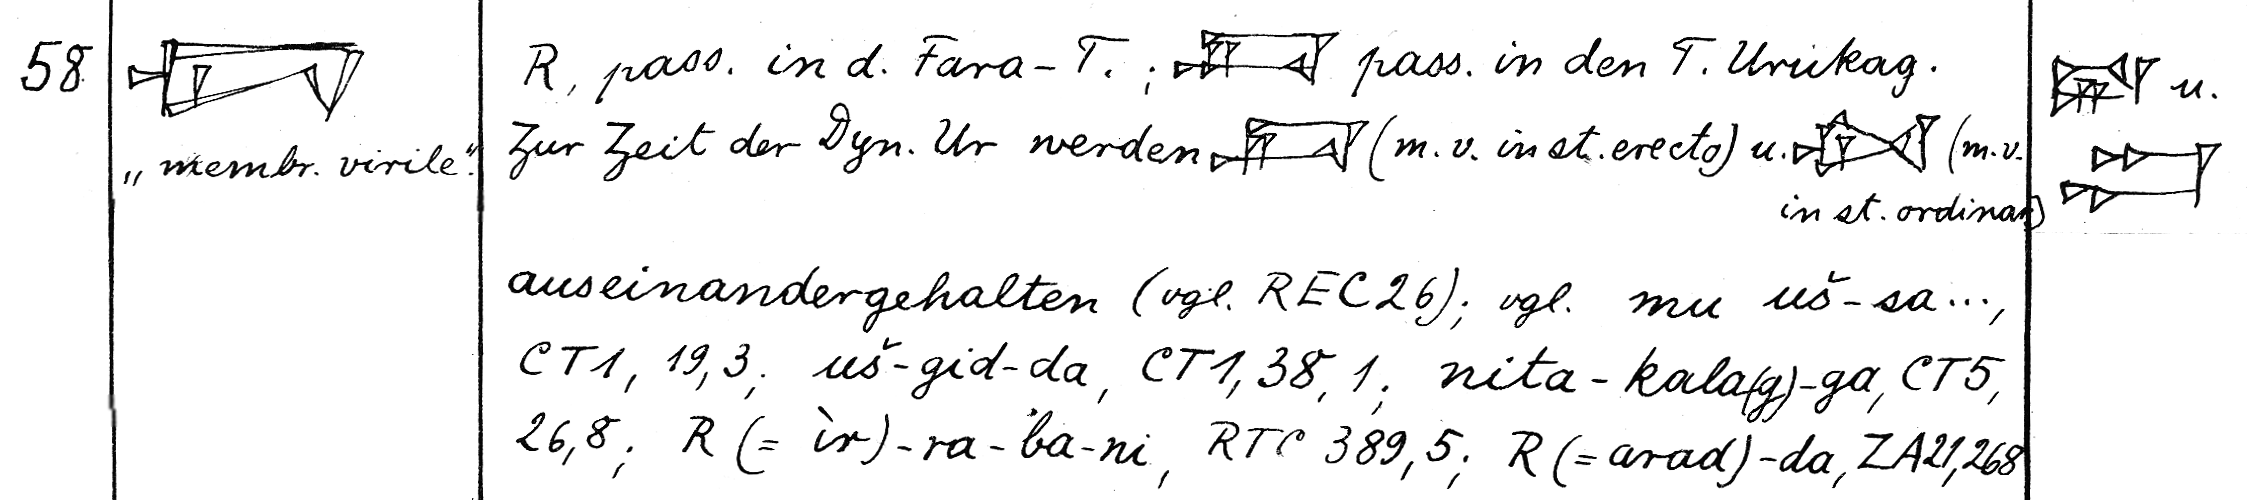 58 R, pass. in d. Fara-T. ; pass. in den T. Urukag. u.
„membr. virile". Zur Zeit der Dyn. Ur werden (m. v. in st. erecto) u. (m. v.
in st. ordinar)
auseinandergehalten (vgl. REC 26); vgl. mu uš-sa...,
CT 1, 19, 3; uš-gid-da, CT 1, 38, 1; nita-kala(g)-ga, CT 5,
26, 8; R (= ìr)-ra-ba-ni, RTC 389, 5; R (= arad)-da, ZA 21, 268